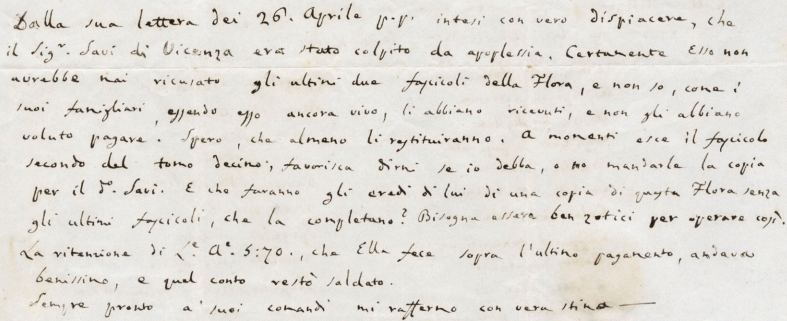 Dalla sua lettera dei 26. Aprile p.p. intesi con vero dispiacere, che
il Sigr. Savi di Vicenza era stato colpito da apoplessia. Certamente Esso non
avrebbe mai ricusato gli ultimi due fascicoli della Flora, e non so, come i
suoi famigliari, essendo esso ancora vivo, li abbiano ricevuti, e non gli abbiano
voluto pagare. Spero, che almeno li restituiranno. A momenti esce il fascicolo
secondo del tomo decimo; favorisca dirmi se io debba, o no mandarle la copia
per il do. Savi. E che faranno gli eredi di lui di una copia di questa Flora senza
gli ultimi fascicoli, che la completano? Bisogna essere ben zotici per operare così.
La ritenzione di Le. Ae. 5:70., che Ella fece sopra l'ultimo pagamento, andava
benissimo, e quel conto restò saldato.
Sempre pronto a' suoi comandi mi raffermo con vera stima —